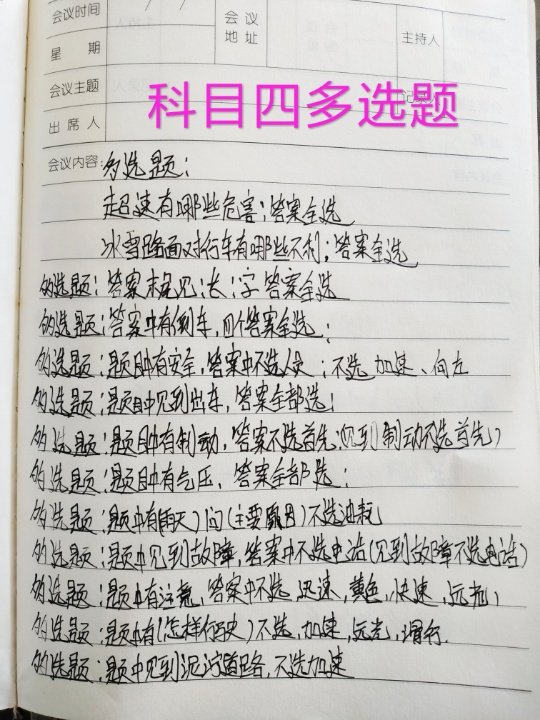 会议时间 / / 会议地址 主持人
星期
会议主题
科目四多选题
出席人
会议内容: 多选题:
超速有哪些危害;答案全选
冰雪路面对行车有哪些不利;答案全选
多选题;答案末尾见;长;字 答案全选
多选题;答案中有倒车,四个答案全选;
多选题;题目中有安全,答案中不选 ;不选加速、向左
多选题;题目中见到出车,答案全部选;
多选题;题目中有制动,答案不选首先(见到制动不选首先)
多选题;题目中有气压,答案全部选;
多选题;题中有(雨天)问(主要原因)不选油耗
多选题;题中见到故障,答案中不选电话(见到故障不选电话)
多选题;题中有注意,答案中不选,迅速,黄色,快速,远光)
多选题;题中有(怎样行驶)不选,加速,远光,滑行.
多选题;题中见到泥泞道路,不选加速